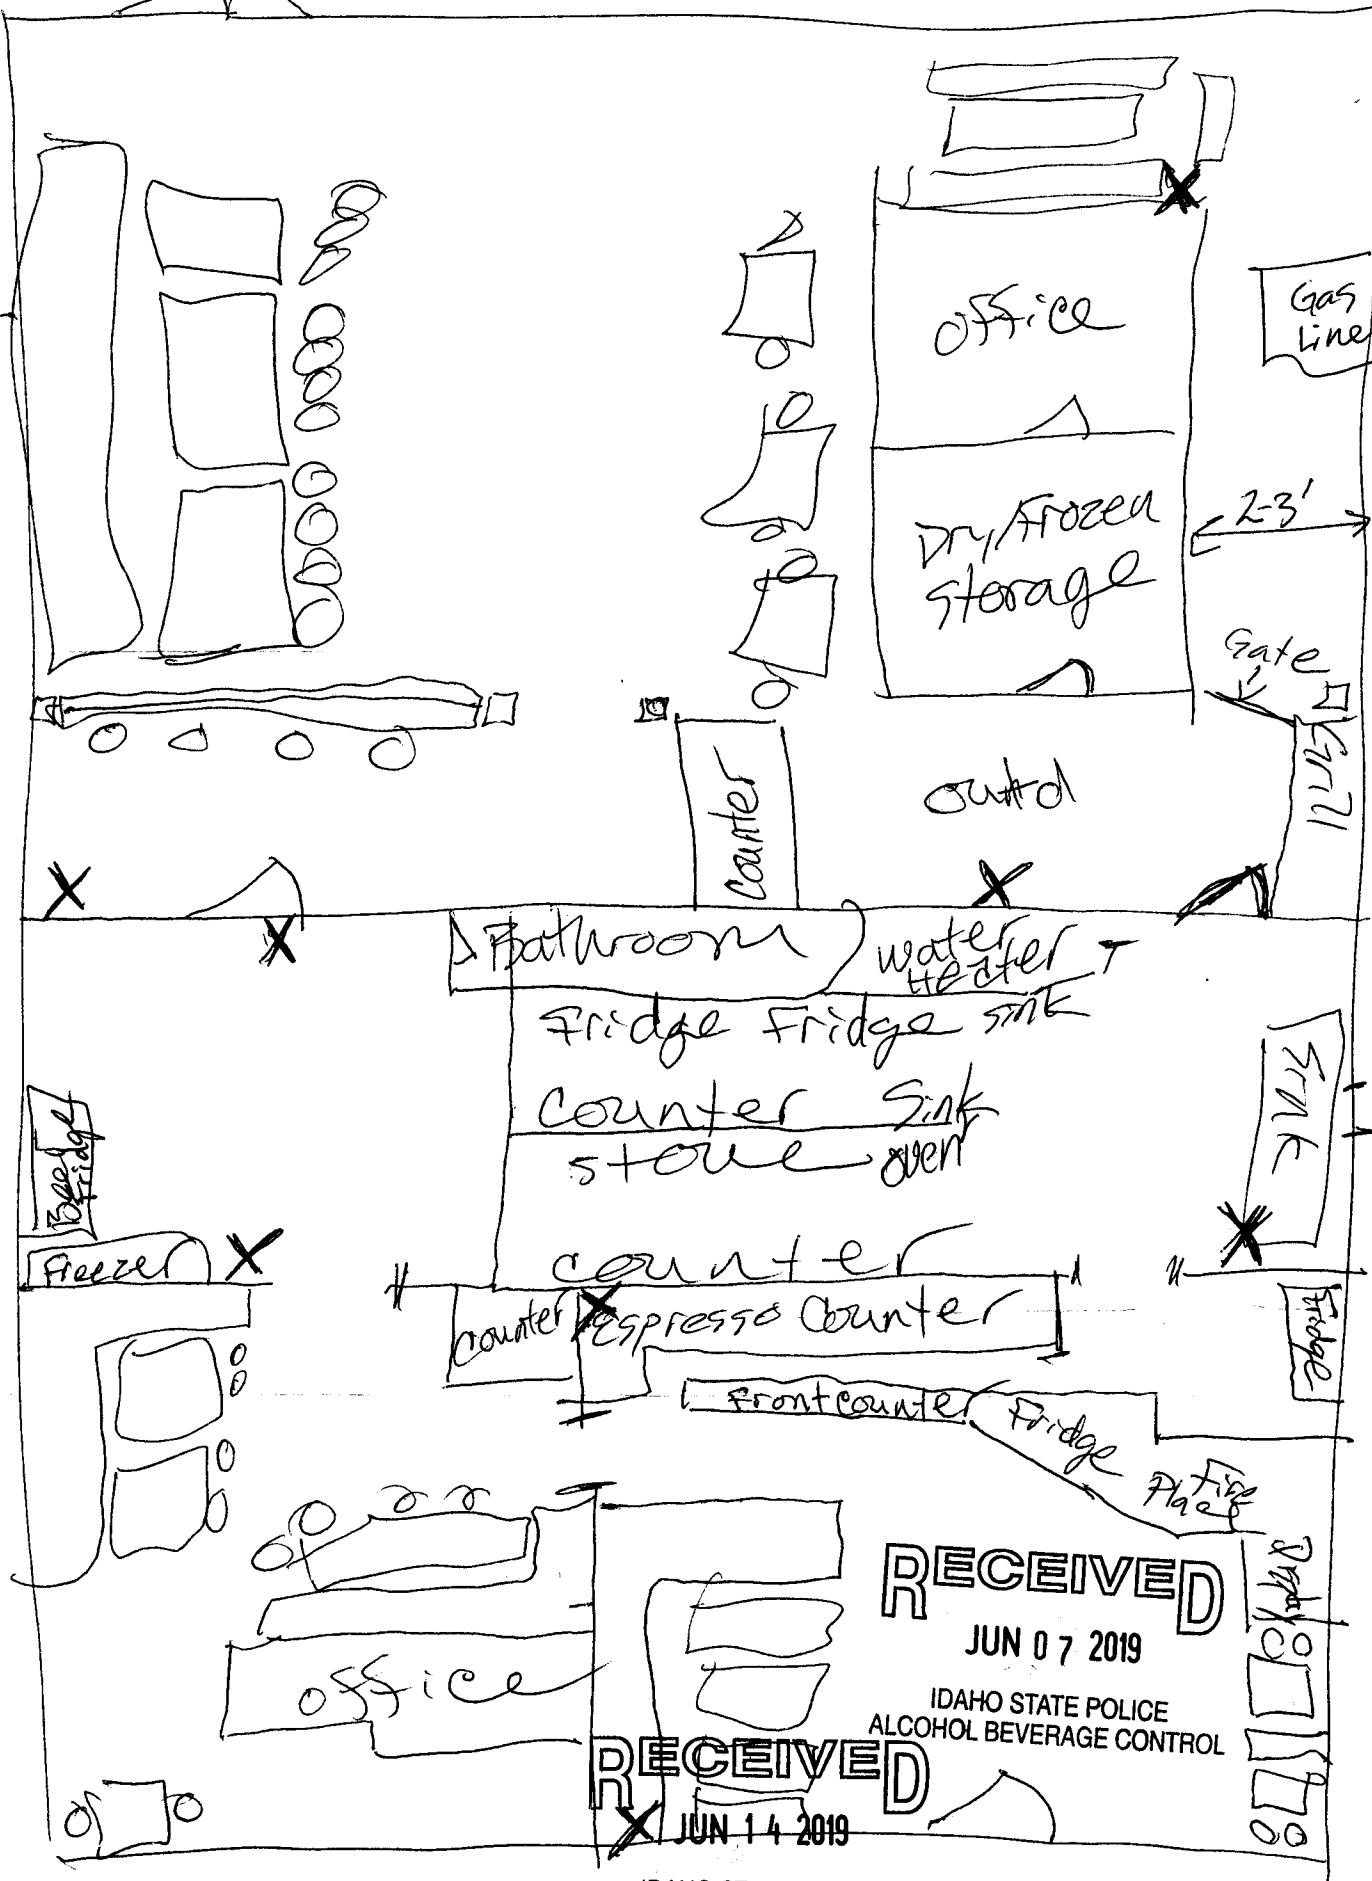 office
Gas
Line
Dry/Frozen
storage
2-3'
Gate
Grill
Counter
Bathroom
water
Heater
Fridge Fridge sink
Counter Sink
stove oven
Sink
Fridge
Freezer
counter
counter
Espresso Counter
Fridge
Front counter
Fridge
Fire
Place
Display
office
RECEIVED
JUN 07 2019
IDAHO STATE POLICE
ALCOHOL BEVERAGE CONTROL
RECEIVED
JUN 14 2019